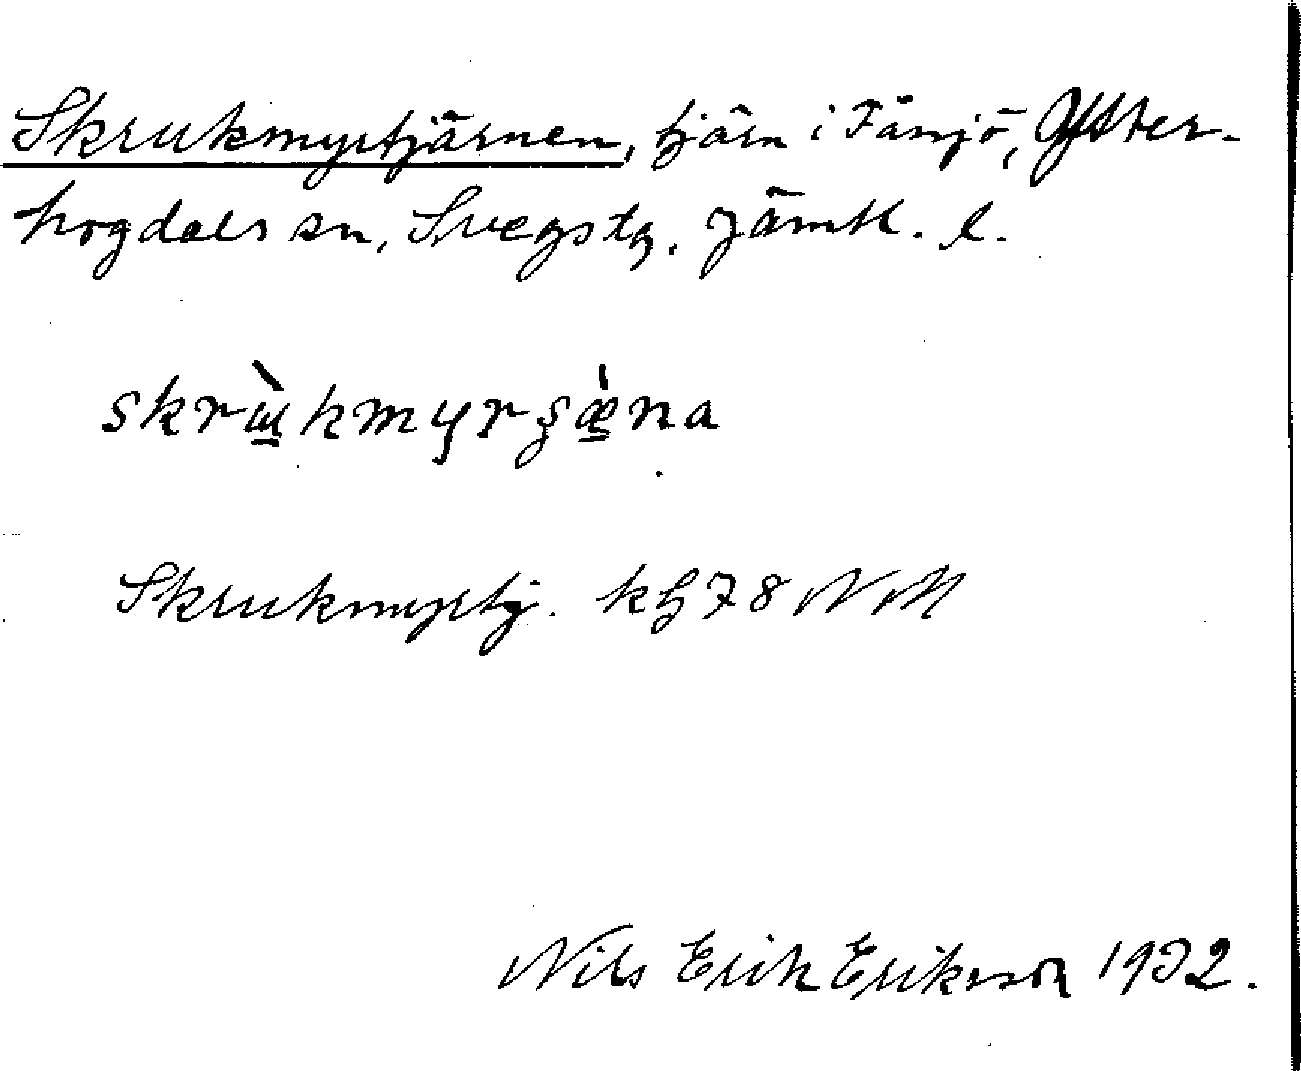 Skrukmyrtjärnen, tjärn i Fånjö, Ytter-
hogdals sn, Svegs tg. Jämtl. l.
skrɯ̀kmyrʂæ̀na
Skrukmyrtj. kg 78 NM
Nils Erik Eriksson 1932.